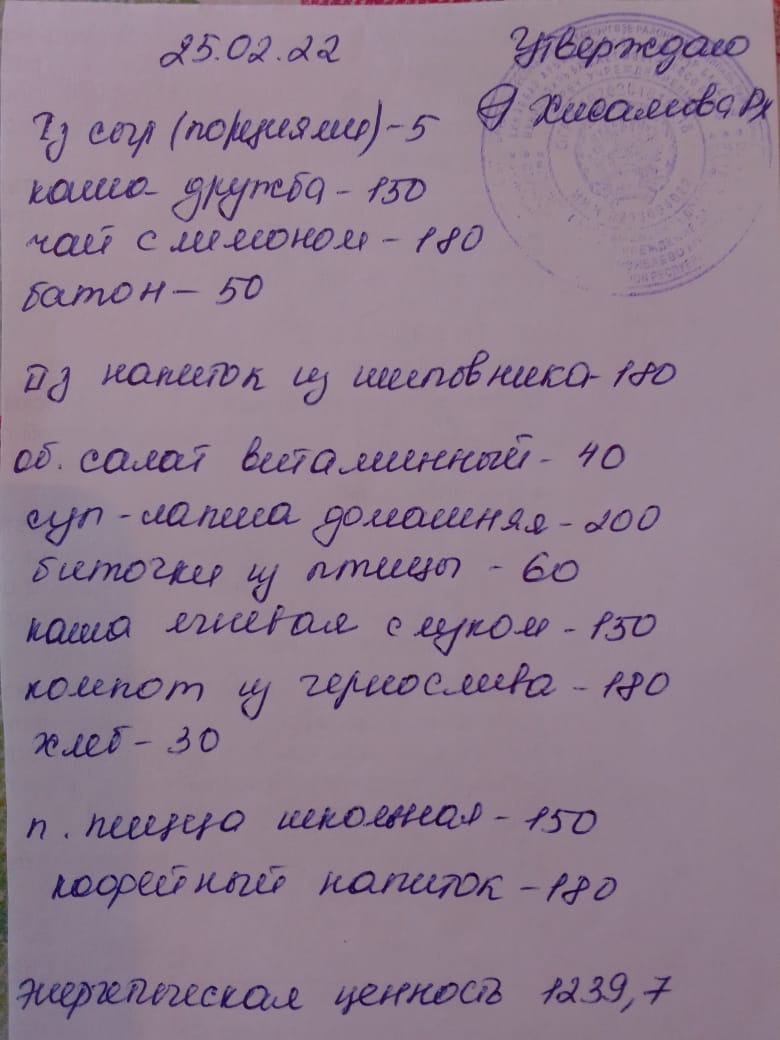 25.02.22
Утверждаю
Хисамова РХ
Iз сыр (порциями) - 5
каша дружба - 150
чай с лимоном - 180
батон - 50
IIз напиток из шиповника - 180
об. салат витаминный - 40
суп - лапша домашняя - 200
биточки из птицы - 60
каша ячневая с луком - 150
компот из чернослива - 180
хлеб - 30
п. пицца школьная - 150
кофейный напиток - 180
энергетическая ценность 1239,7